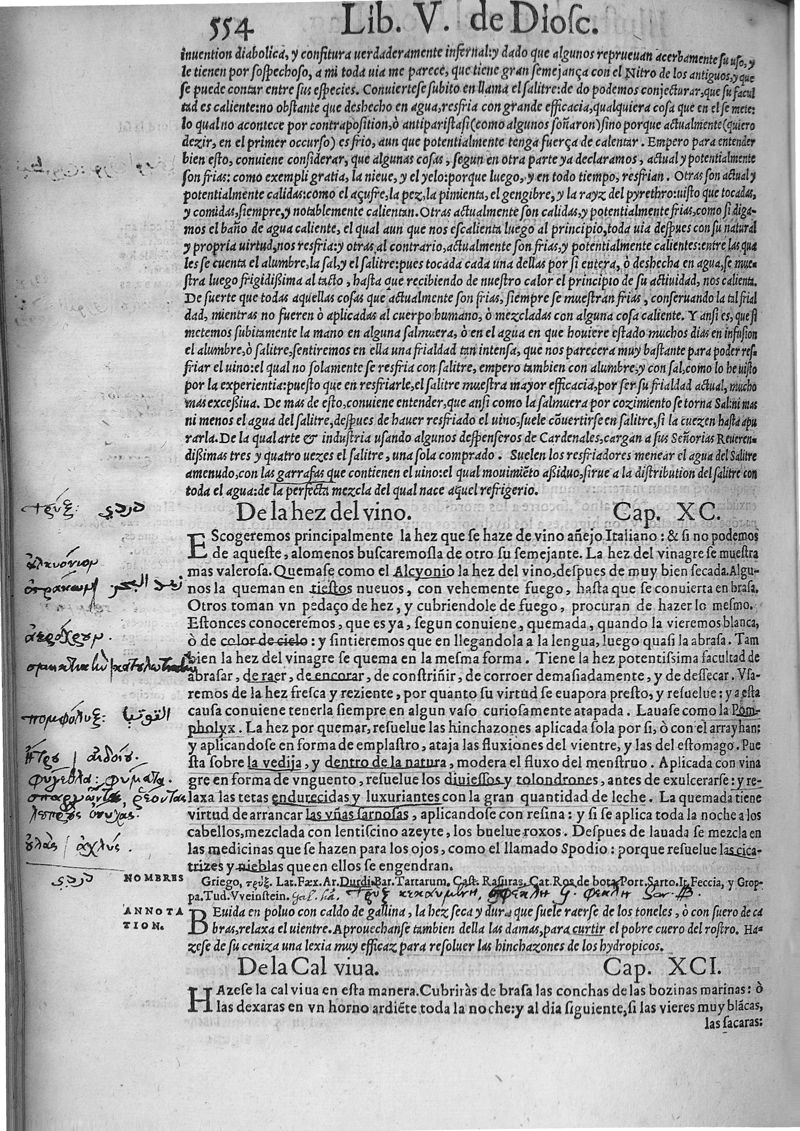 554 Lib. V. de Diosc.
inuention diabolica, y confitura uerdaderamente infernal: y dado que algunos reprueuan acerbamente su uso, y
le tienen por sospechoso, a mi toda uia me parece, que tiene gran semejança con el Nitro de los antiguos, y que
se puede contar entre sus especies. Conuiertese subito en llama el salitre: de do podemos conjecturar, que su facul
tad es caliente: no obstante que deshecho en agua, resfria con grande efficacia, qualquiera cosa que en el se mete:
lo qual no acontece por contraposition, ò antiparistasi (como algunos soñaron) sino porque actualmente (quiero
dezir, en el primer occurso) es frio, aun que potentialmente tenga fuerça de calentar. Empero para entender
bien esto, conuiene considerar, que algunas cosas, segun en otra parte ya declaramos, actual y potentialmente
son frias: como exempli gratia, la nieue, y el yelo: porque luego, y en todo tiempo, resfrian. Otras son actual y
potentialmente calidas: como el açufre, la pez, la pimienta, el gengibre, y la rayz del pyrethro: uisto que tocadas,
y comidas, siempre, y notablemente calientan. Otras actualmente son calidas, y potentialmente frias, como si diga-
mos el baño de agua caliente, el qual aun que nos escalienta luego al principio, toda uia despues con su natural
y propria uirtud, nos resfria: y otras al contrario, actualmente son frias, y potentialmente calientes: entre las qua
les se cuenta el alumbre, la sal, y el salitre: pues tocada cada una dellas por si entera, ò deshecha en agua, se mue-
stra luego frigidißima al tacto, hasta que recibiendo de nuestro calor el principio de su actiuidad, nos calienta.
De suerte que todas aquellas cosas que actualmente son frias, siempre se muestran frias, conseruando la tal frial
dad, mientras no fueren ò aplicadas al cuerpo humano, ò mezcladas con alguna cosa caliente. Y ansi es, que si
metemos subitamente la mano en alguna salmuera, ò en el agua en que houiere estado muchos dias en infusion
el alumbre, ò salitre, sentiremos en ella una frialdad tan intensa, que nos parecera muy bastante para poder res-
friar el uino: el qual no solamente se resfria con salitre, empero tambien con alumbre, y con sal, como lo he uisto
por la experientia: puesto que en resfriarle, el salitre muestra mayor efficacia, por ser su frialdad actual, mucho
mas exceßiua. De mas de esto, conuiene entender, que ansi como la salmuera por cozimiento se torna Sal: ni mas
ni menos el agua del salitre, despues de hauer resfriado el uino, suele cõuertirse en salitre, si la cuezen hasta apu
rarla. De la qual arte & industria usando algunos despenseros de Cardenales, cargan a sus Señorias Reueren-
dißimas tres y quatro uezes el salitre, una sola comprado. Suelen los resfriadores menear el agua del Salitre
amenudo, con las garrafas que contienen el uino: el qual mouimiẽto aßiduo, sirue a la distribution del salitre con
toda el agua: de la perfecta mezcla del qual nace aquel refrigerio.
De la hez del vino. Cap. XC.
EScogeremos principalmente la hez que se haze de vino añejo Italiano: & si no podemos
de aqueste, alomenos buscaremosla de otro su semejante. La hez del vinagre se muestra
mas valerosa. Quemase como el Alcyonio la hez del vino, despues de muy bien secada. Algu-
nos la queman en tiestos nueuos, con vehemente fuego, hasta que se conuierta en brasa.
Otros toman vn pedaço de hez, y cubriendole de fuego, procuran de hazer lo mesmo.
Estonces conoceremos, que es ya, segun conuiene, quemada, quando la vieremos blanca,
ò de color de cielo: y sintieremos que en llegandola a la lengua, luego quasi la abrasa. Tam
bien la hez del vinagre se quema en la mesma forma. Tiene la hez potentissima facultad de
abrasar, de raer, de encorar, de constriñir, de corroer demasiadamente, y de dessecar. Vsa-
remos de la hez fresca y reziente, por quanto su virtud se euapora presto, y resuelue: y a esta
causa conuiene tenerla siempre en algun vaso curiosamente atapada. Lauase como la Pom-
pholyx. La hez por quemar, resuelue las hinchazones aplicada sola por si, ò con el arrayhan:
y aplicandose en forma de emplastro, ataja las fluxiones del vientre, y las del estomago. Pue
sta sobre la vedija, y dentro de la natura, modera el fluxo del menstruo. Aplicada con vina
gre en forma de vnguento, resuelue los diuiessos y tolondrones, antes de exulcerarse: y re-
laxa las tetas endurecidas y luxuriantes con la gran quantidad de leche. La quemada tiene
virtud de arrancar las vñas sarnosas, aplicandose con resina: y si se aplica toda la noche a los
cabellos, mezclada con lentiscino azeyte, los buelue roxos. Despues de lauada se mezcla en
las medicinas que se hazen para los ojos, como el llamado Spodio: porque resuelue las cica-
trizes y nieblas que en ellos se engendran.
NOMBRES Griego, τρυξ. Lat. Fæx. Ar. Durdi. Bar. Tartarum. Cast. Rasuras. Cat. Ros de bota. Port. Sarro. It. Feccia, y Grop-
pa. Tud. Vveinstein.
ANNOTA BEuida en poluo con caldo de gallina, la hez seca y dura que suele raerse de los toneles, ò con suero de ca
TION. bras, relaxa el uientre. Aprouechanse tambien della las damas, para curtir el pobre cuero del rostro. Ha-
zese de su ceniza una lexia muy efficaz para resoluer las hinchazones de los hydropicos.
De la Cal viua. Cap. XCI.
HAzese la cal viua en esta manera. Cubriràs de brasa las conchas de las bozinas marinas: ò
las dexaras en vn horno ardiẽte toda la noche: y al dia siguiente, si las vieres muy blãcas,
las sacaras: